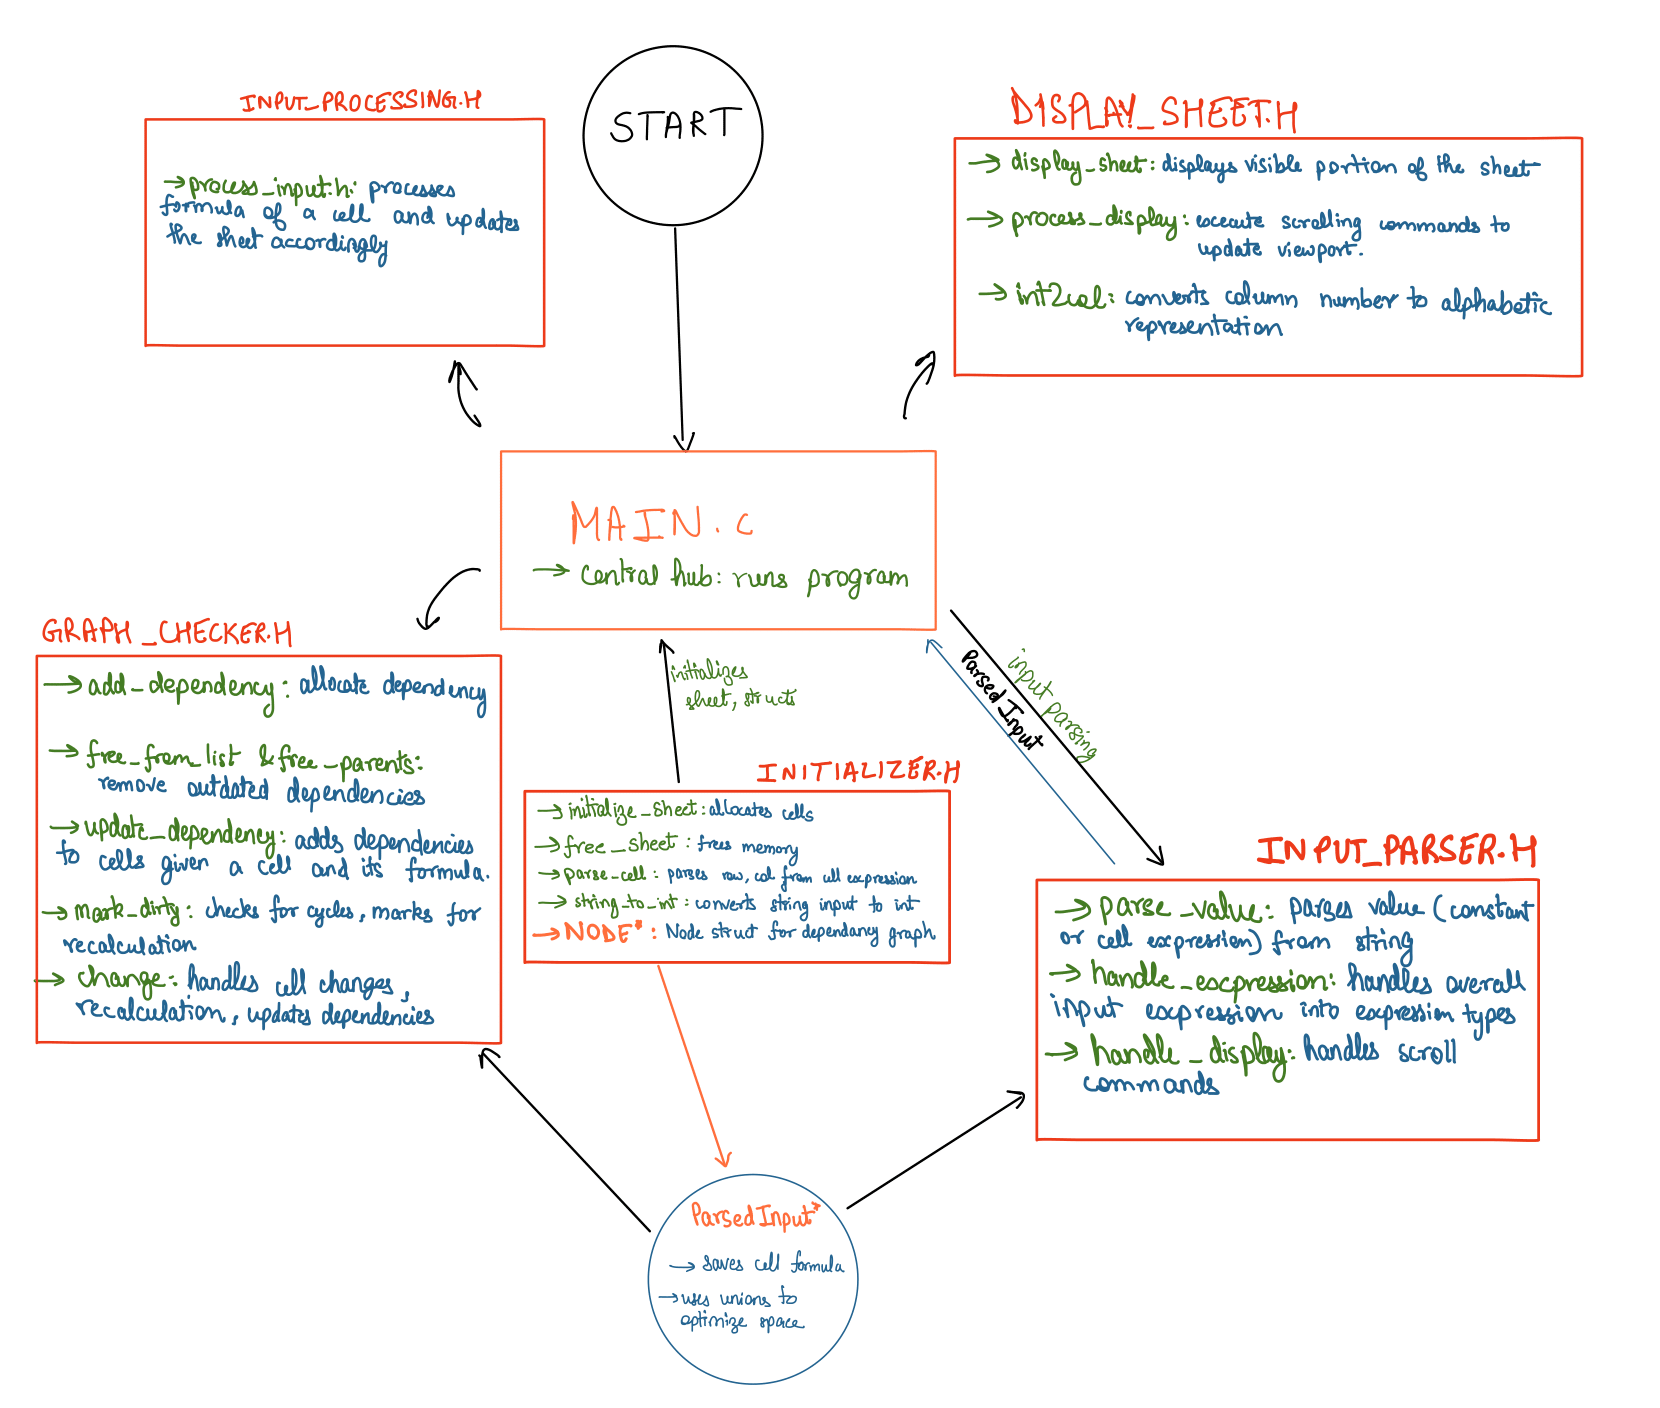 START
INPUT_PROCESSING.H
→ process_input.h: processes
formula of a cell and updates
the sheet accordingly
DISPLAY_SHEET.H
→ display_sheet: displays visible portion of the sheet
→ process_display: execute scrolling commands to
update viewport.
→ int2col: converts column number to alphabetic
representation
MAIN.c
→ central hub: runs program
GRAPH_CHECKER.H
→ add_dependency: allocate dependency
→ free_from_list & free_parents:
remove outdated dependencies
→ update_dependency: adds dependencies
to cells given a cell and its formula.
→ mark_dirty: checks for cycles, marks for
recalculation
→ change: handles cell changes,
recalculation, updates dependencies
initializes
sheet, structs
input parsing
ParsedInput
INITIALIZER.H
→ initialize_sheet: allocates cells
→ free_sheet: frees memory
→ parse_cell: parses row, col from cell expression
→ string_to_int: converts string input to int
→ NODE*: Node struct for dependancy graph
INPUT_PARSER.H
→ parse_value: parses value (constant
or cell expression) from string
→ handle_expression: handles overall
input expression into expression types
→ handle_display: handles scroll
commands
ParsedInput*
→ saves cell formula
→ uses unions to
optimize space